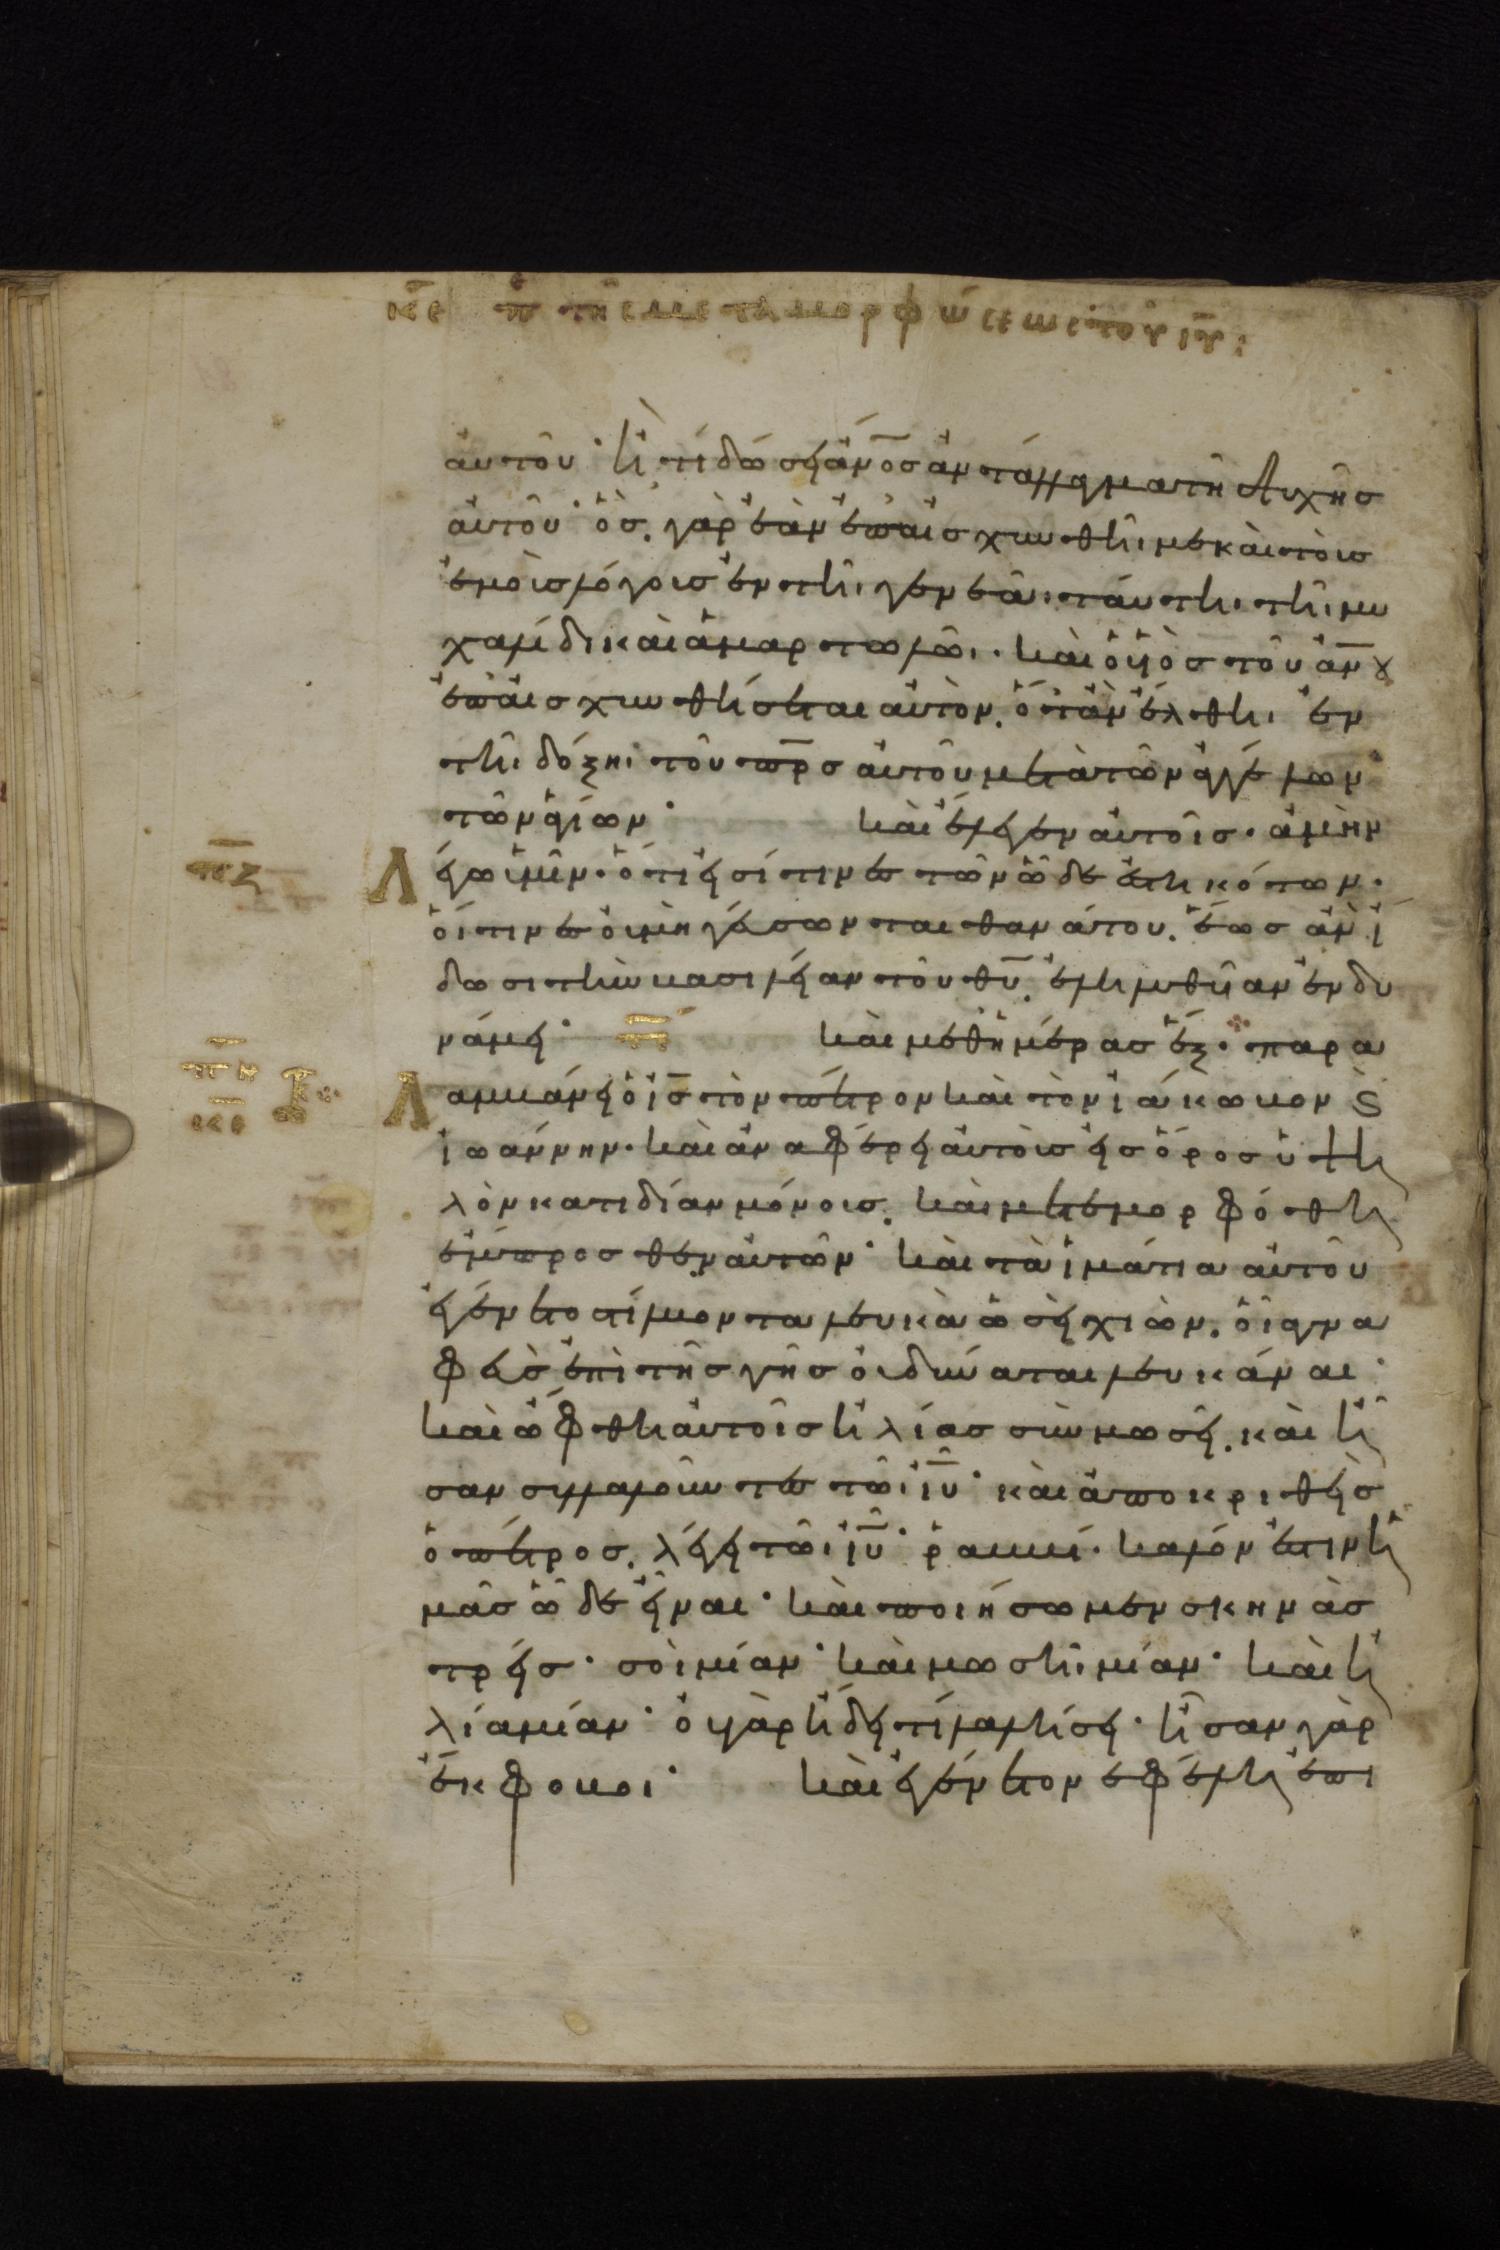 κε περι της μεταμορφώσεως του ιυ:
αὐτοῦ· ἢ τί δώσει ἀνος ἀντάλλαγμα τῆ ψυχῆς
αὐτοῦ· ὃς γὰρ ἐὰν ἐπαισχυνθῆι με καὶ τοὺς
ἐμοὺς λόγους ἐν τῆι γενεᾶι ταύτηι τῆι μοι
χαλίδι καὶ ἁμαρτωλῶι· καὶ ὁ υἱὸς τοῦ ἀνου
ἐπαισχυνθήσεται αὐτὸν, ὅταν ἔλθηι ἐν
τῆι δόξηι τοῦ πρσ αὐτοῦ μετὰ τῶν ἀγγέλων
τῶν ἁγίων· καὶ ἔλεγεν αὐτοῖς· ἀμὴν
πζ Λ
έγω ὑμῖν· ὅτι εἰσί τινες τῶν ὧδε ἑστηκότων·
οἵτινες οὐ μὴ γεύσωνται θανάτου, ἕως ἂν ἴ
δωσι τὴν βασιλείαν τοῦ θυ, ἐληλυθυῖαν ἐν δυ
νάμει· καὶ μεθ ἡμέρας ἕξ· παρα
πη
κε Λ
αμβάνει ὁ ις τὸν πέτρον καὶ τὸν ἰάκωβον ϗ
ἰωάννην· καὶ ἀναφέρει αὐτοὺς εἰς ὄρος ὑψη
λὸν κατιδίαν μόνους, καὶ μετεμορφόθη
ἔμπροσθεν αὐτῶν· καὶ τὰ ἱμάτια αὐτοῦ
ἐγένετο στίλβοντα λευκὰ ὡσεὶ χιὼν, οἷα γνα
φεὺς ἐπὶ τῆς γῆς οὐ δύναται λευκάναι·
καὶ ὤφθη αὐτοῖς ἠλίας σὺν μωσεῖ, καὶ ἦ
σαν συλλαλοῦντες τῶι ιυ· καὶ ἀποκριθεὶς
ὁ πέτρος, λέγει τῶι ιυ· ῥαββί· καλόν ἐστιν ἡ
μᾶς ὧδε εἶναι· καὶ ποιήσωμεν σκηνὰς
τρεῖς· σοὶ μίαν· καὶ μωσῆι μίαν· καὶ ἡ
λία μίαν· οὐ γὰρ ἤδει τί λαλήσει· ἦσαν γὰρ
ἔκφοβοι· καὶ ἐγένετο νεφέλη ἐπι